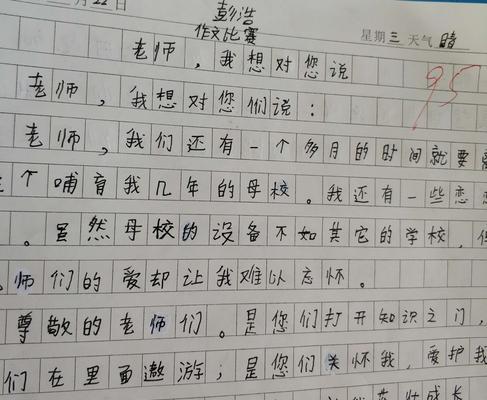 月22日
彭浩
作文比赛
星期三 天气 暗
老师，我想对您说
95
老师，我想对您们说：
老师，我们还有一个多月的时间就要
个哺育我几年的母校。我还有一些恋
。虽然母校的设备不如其它的学校，
师们的爱却让我难以忘怀。
尊敬的老师们。是您们打开知识之门，
们在里面遨游；是您们关怀我，爱护我
成长